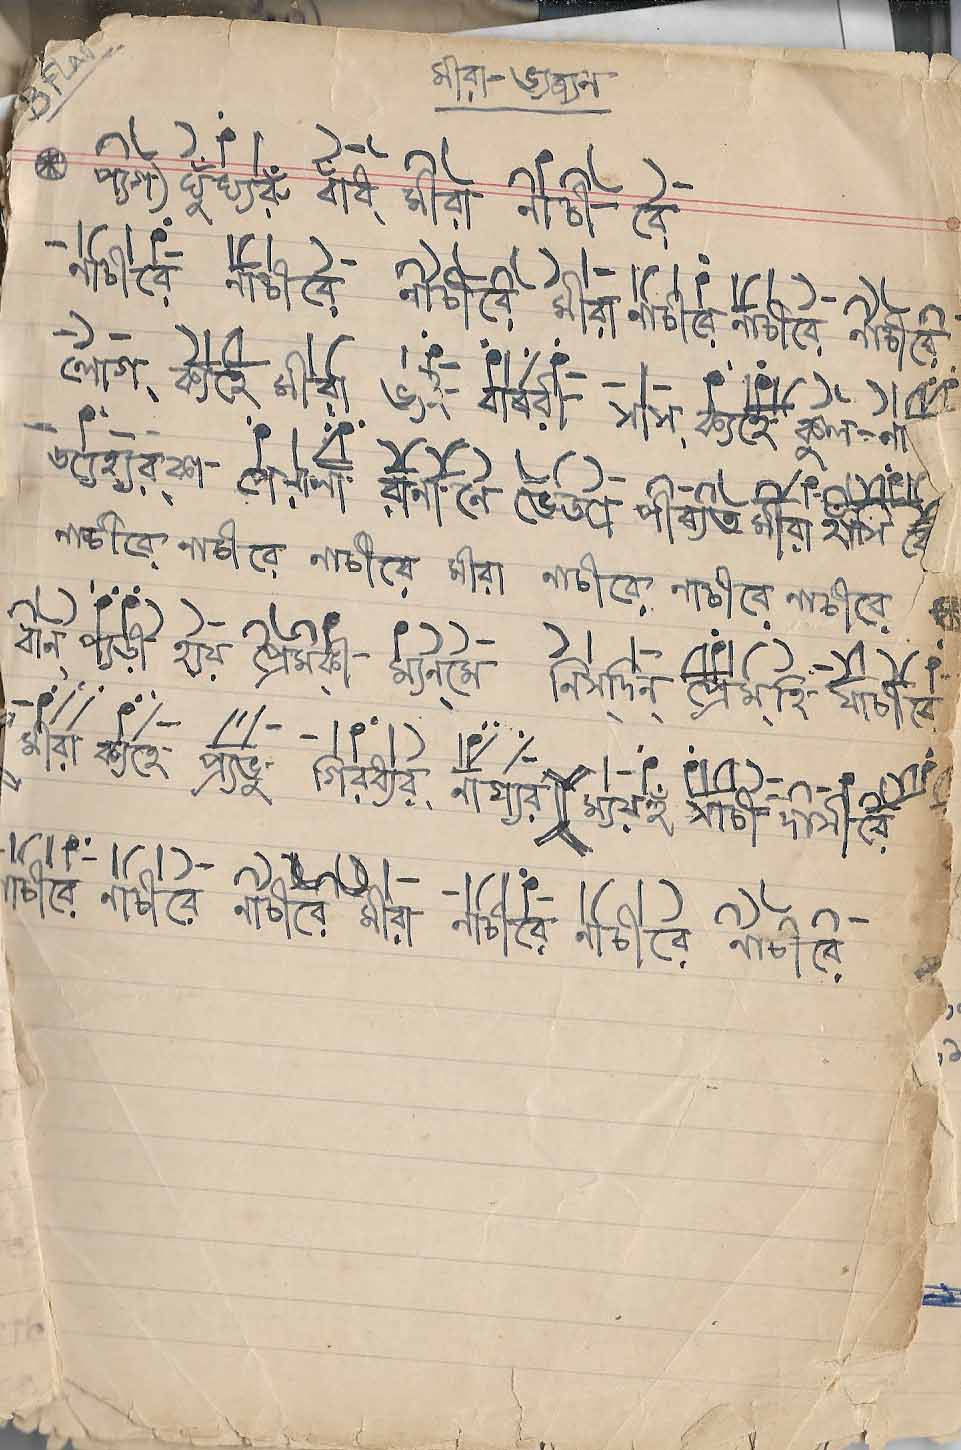 B FLAT
মীরা-ভ্যজ্যন
প্যগ্ ঘুঁঘ্যরুঁ বাঁধ্ মীরা নাচী রে
নাচীরে নাচীরে নাচীরে মীরা নাচীরে নাচীরে নাচীরে
লোগ্ ক্যহে মীরা ভ্যই বাবরী সাস্ ক্যহে কুল-না
পেয়ালা রানা নে ভেজা পীব্যত মীরা হাসি রে
নাচীরে নাচীরে নাচীরে মীরা নাচীরে নাচীরে নাচীরে
বান্ প্যড়ী হ্যয় প্রেমকী ম্যন্‌মে নিস্‌দিন্ প্রেম্‌হি যাচীরে
মীরা ক্যহে প্র্যভু গির‍ধ্যর্ নাগ্যর ম্যয়হুঁ সাচী দাসী রে
নাচীরে নাচীরে মীরা নাচীরে নাচীরে নাচীরে